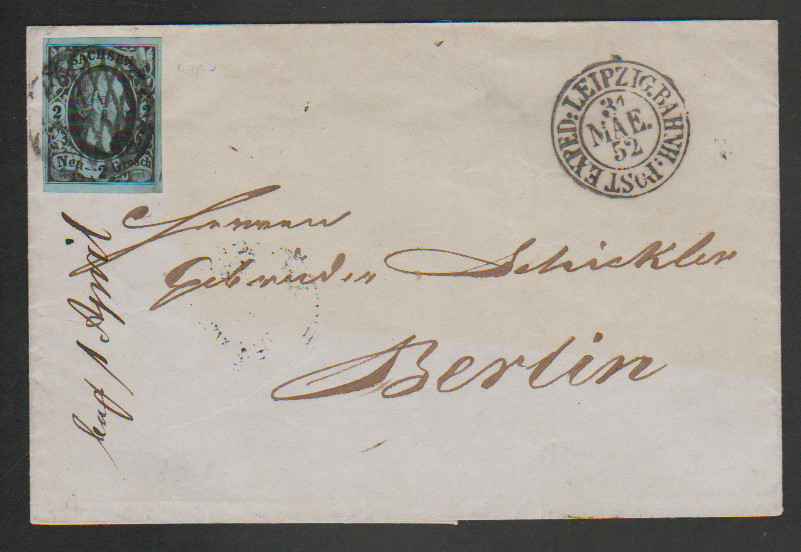 SACHSEN
2 2
Neu-2 Grosch
LEIPZIG.BAHNH.POST EXPED:
31
MAE.
52
Herren
Gebrüder Schickler
Berlin
1 April